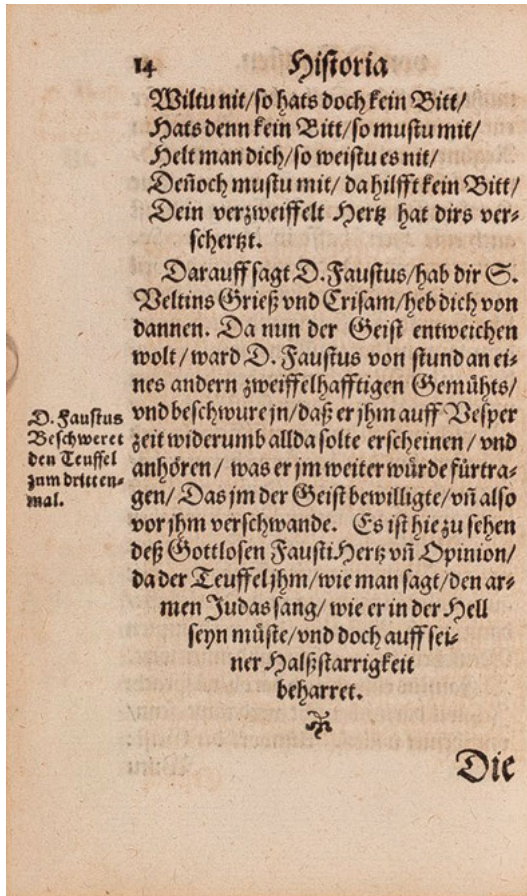 14 Historia
Wiltu nit/so hats doch kein Bitt/
Hats denn kein Bitt/so mustu mit/
Helt man dich/so weistu es nit/
Deñoch mustu mit/ da hilfft kein Bitt/
Dein verzweiffelt Hertz hat dirs ver-
schertzt.
Darauff sagt D. Faustus/hab dir S.
Veltins Grieß vnd Crisam/heb dich von
dannen. Da nun der Geist entweichen
wolt/ward D. Faustus von stund an ei-
nes andern zweiffelhafftigen Gemühts/
vnd beschwure jn/daß er jhm auff Vesper
zeit widerumb allda solte erscheinen/ vnd
anhören/ was er jm weiter würde fürtra-
gen/ Das jm der Geist bewilligte/vñ also
vor jhm verschwande. Es ist hie zu sehen
deß Gottlosen Fausti Hertz vñ Opinion/
da der Teuffel jhm/wie man sagt/den ar-
men Judas sang/ wie er in der Hell
seyn müste/vnd doch auff sei-
ner Halßstarrigkeit
beharret.
D. Faustus
Beschweret
den Teuffel
zum dritten-
mal.
Die